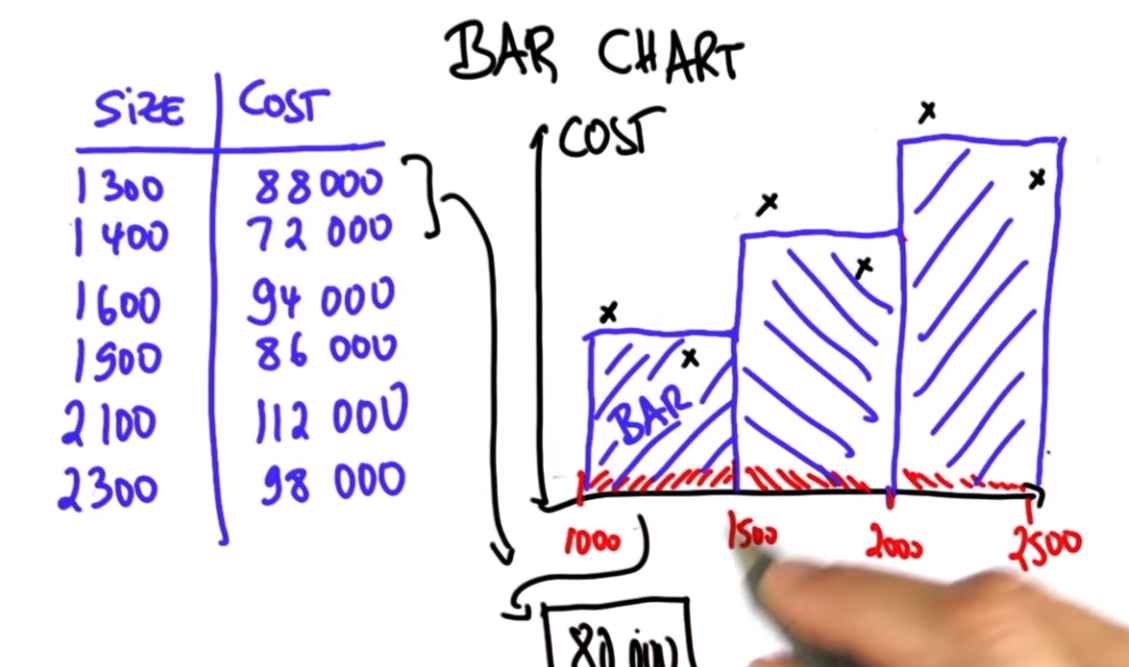 BAR CHART
SIZE COST
1300 88000
1400 72 000
1600 94 000
1900 86 000
2100 112 000
2300 98 000
COST
BAR
1000 1500 2000 2500